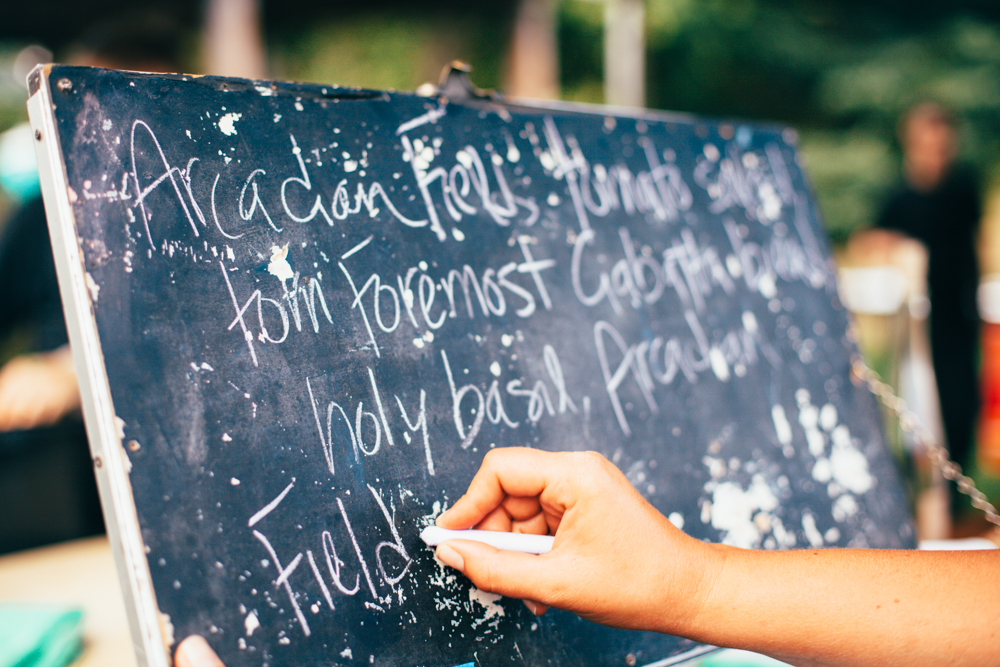 Arcadian Fields, tomato salad,
torn Foremost Ciabatta bread
holy basil, Arcadian
Field